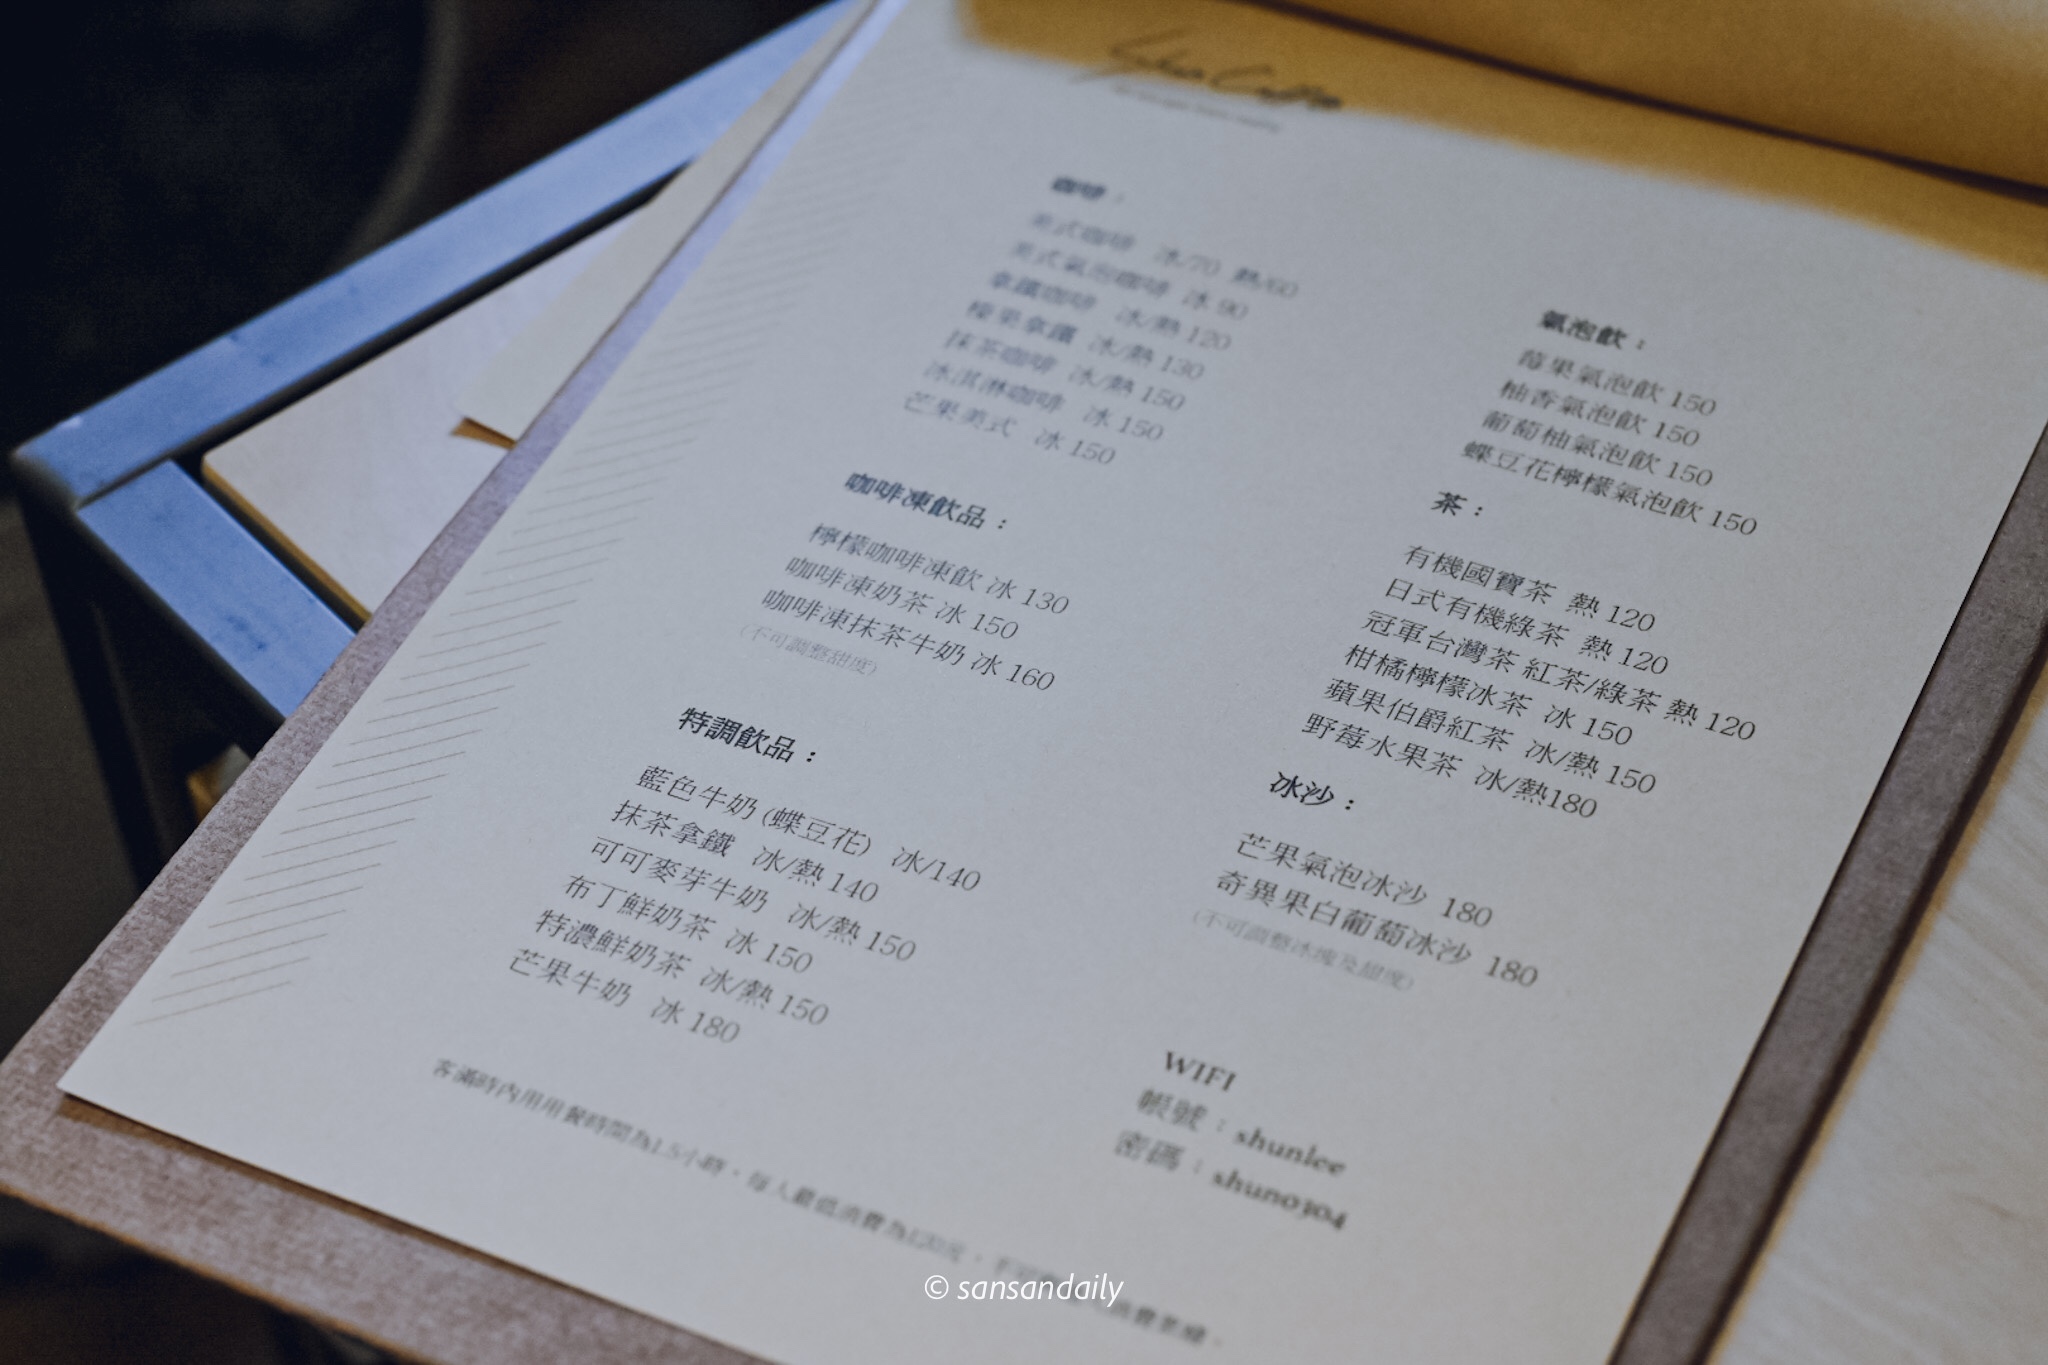 咖啡：
美式咖啡 冰/70 熱/60
美式氣泡咖啡 冰 90
拿鐵咖啡 冰/熱 120
榛果拿鐵 冰/熱 130
抹茶咖啡 冰/熱 150
冰淇淋咖啡 冰 150
芒果美式 冰 150
咖啡凍飲品：
檸檬咖啡凍飲 冰 130
咖啡凍奶茶 冰 150
咖啡凍抹茶牛奶 冰 160
(不可調整甜度)
特調飲品：
藍色牛奶 (蝶豆花) 冰/140
抹茶拿鐵 冰/熱 140
可可麥芽牛奶 冰/熱 150
布丁鮮奶茶 冰 150
特濃鮮奶茶 冰/熱 150
芒果牛奶 冰 180
氣泡飲：
莓果氣泡飲 150
柚香氣泡飲 150
葡萄柚氣泡飲 150
蝶豆花檸檬氣泡飲 150
茶：
有機國寶茶 熱 120
日式有機綠茶 熱 120
冠軍台灣茶 紅茶/綠茶 熱 120
柑橘檸檬冰茶 冰 150
蘋果伯爵紅茶 冰/熱 150
野莓水果茶 冰/熱180
冰沙：
芒果氣泡冰沙 180
奇異果白葡萄冰沙 180
(不可調整冰塊及甜度)
WIFI
帳號：shunlee
密碼：shun0304
客滿時內用用餐時間為1.5小時，每人最低消費為120元，不可
© sansandaily